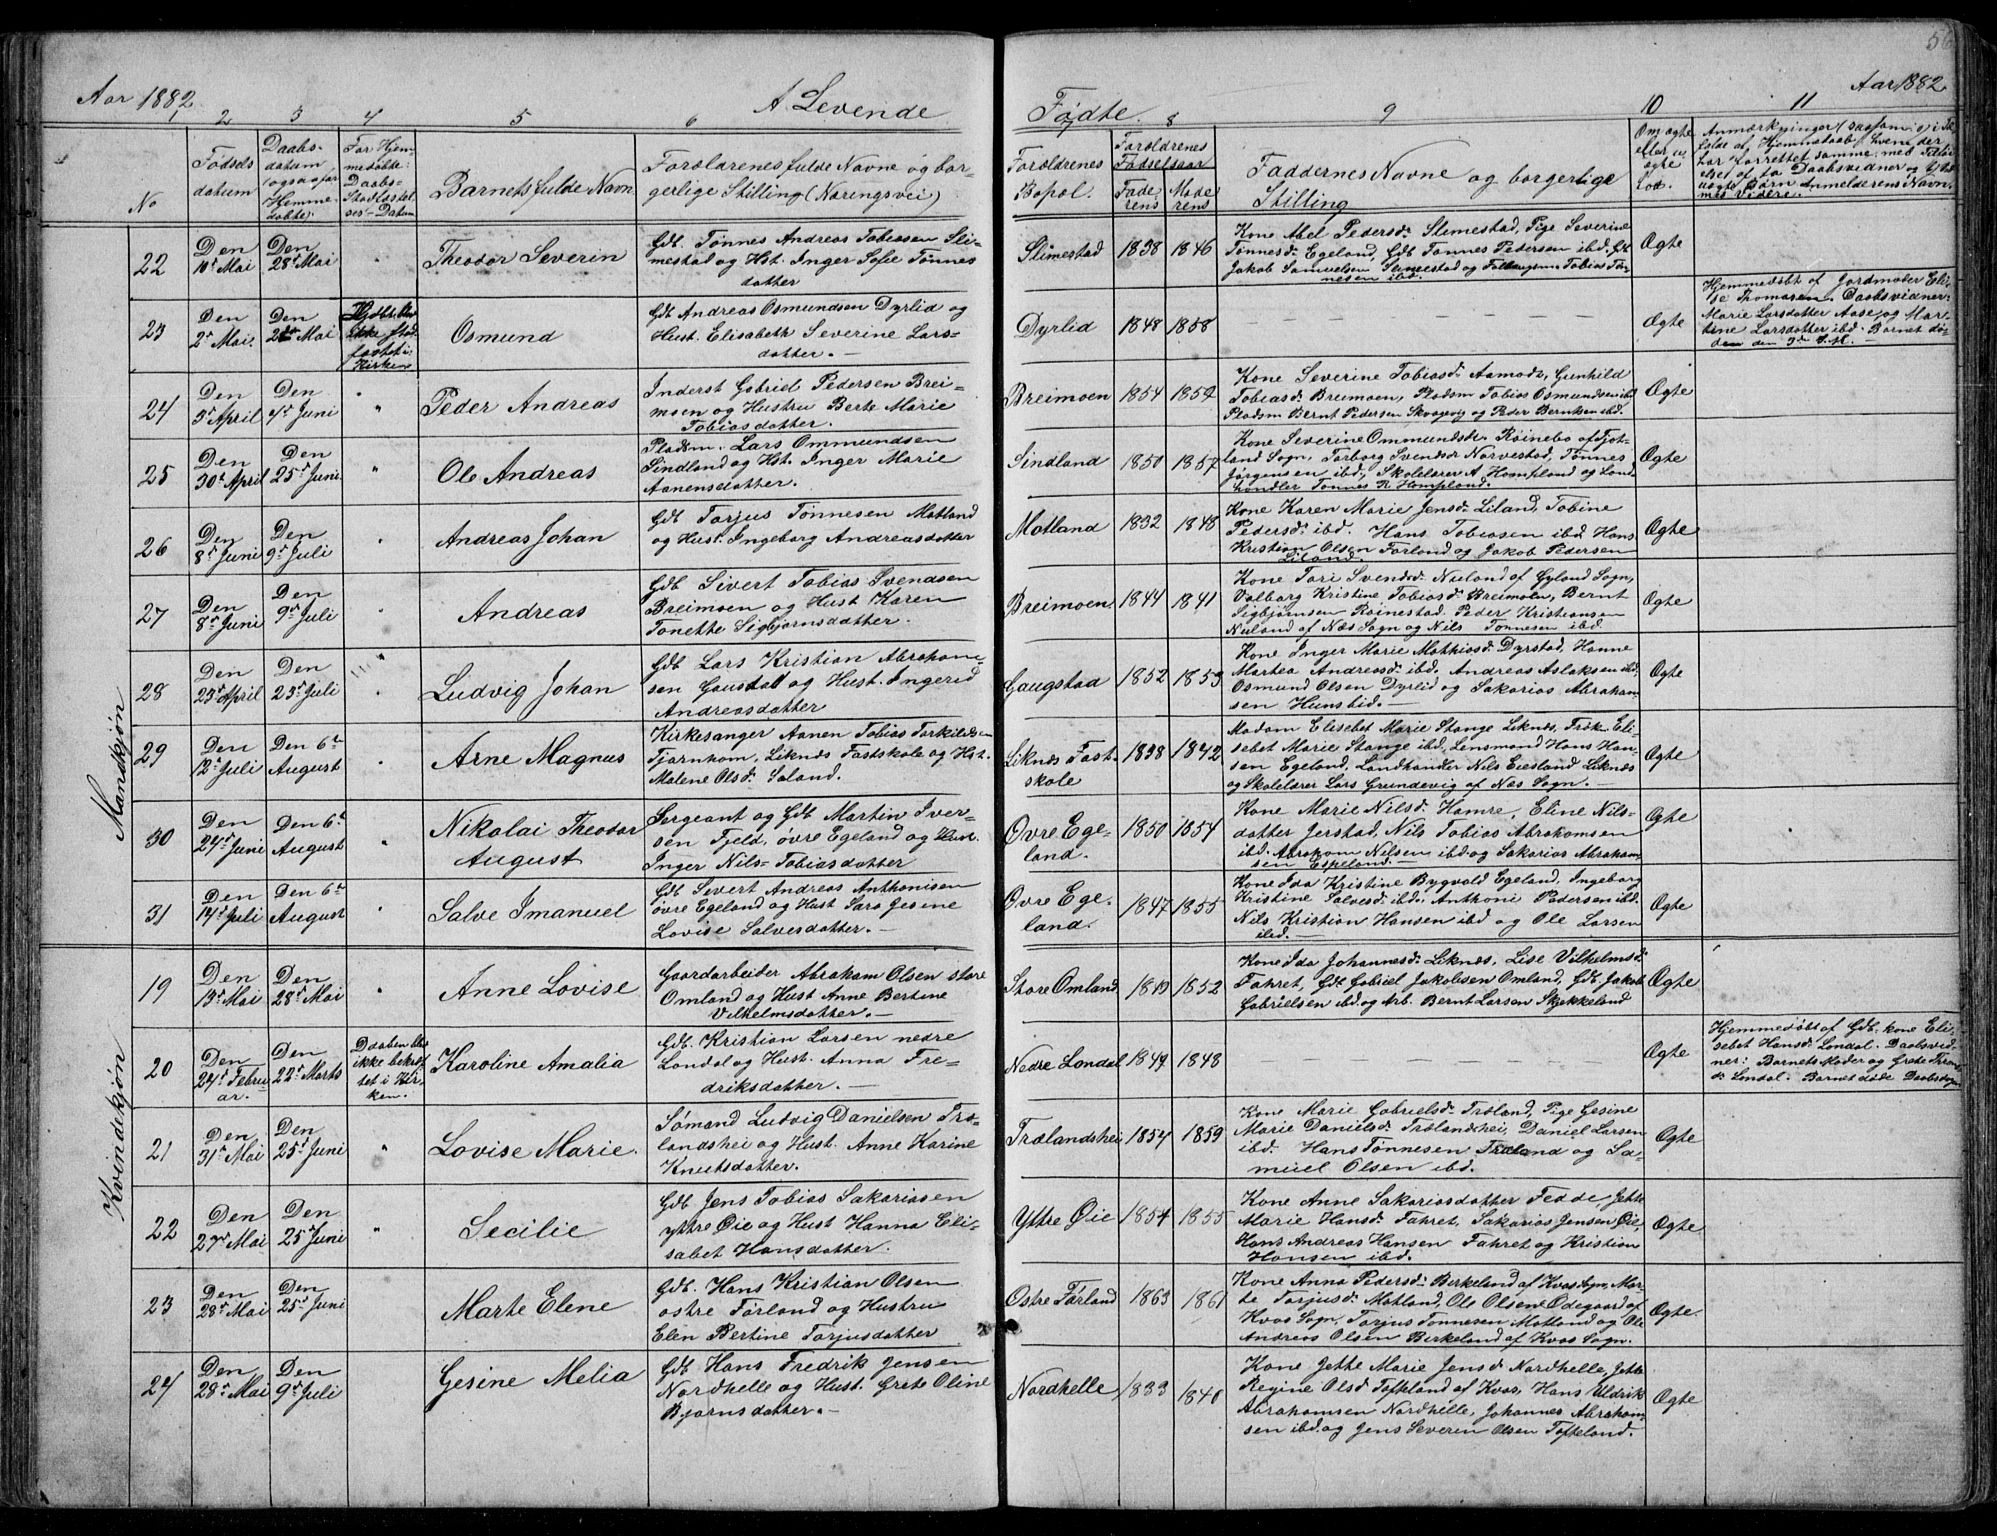 Aar 1882.
A Levende
Fødte.
Aar 1882
56
2 3 4 5 6
8 9 10 11
No
Fødsels
datum
Daabs-
datum
ogsaa for
Hjemme-
døbte
For Hjem-
medøbte:
Daabs-
Stadfæstel-
ses-Datum
Barnets fulde Navn
Forældrenes fulde Navne og bor-
gerlige Stilling (Næringsvei)
Forældrenes
Bopæl
Forældrenes
Fødselsaar
Fade-
rens
Mode-
rens
Faddernes Navne og borgerlige
Stilling
Om ægte
eller u-
ægte
født.
Mandkjøn
22
Den
10de Mai
Den
28de Mai
"
Theodor Severin
Gdb. Tønnes Andreas Tobiassen Sli-
mestad og Hst. Inger Sofie Tønnes-
datter
Slimestad
1838
1846
Kone Abel Pedersd. Slimestad, Pige Severine
Tønnesd. Egeland, Gdb Tønnes Pedersen ibd., Gdb
Jakob Samuelsen Slimestad og Tobias Tøn-
nesen ibd.
Ægte
23
Den
2de Mai
Den
2de Mai
ikke stad-
fæstet i
Kirken
Osmund
Gdb Andreas Osmundsen Dyrlid og
Hust. Elisabeth Severine Lars-
datter. —
Dyrlid
1848
1858
— — — — —
Ægte
Hjemmedøbt af Jordmoder Eli-
se Thomasen. Daabsvidner:
Marie Larsdatter Aase og Mar-
tine Larsdatter ibd. Barnet dø-
de den 3de s.M. —
24
Den
5de April
Den
4de Juni
"
Peder Andreas
Inderst Gabriel Pedersen Brei-
moen og Hustru Berte Marie
Tobiasdatter.
Breimoen
1854
1859
Kone Severine Tobiasd. Aamodt, Gunhild
Tobiasd. Breimoen, Pladsm Tobias Osmundsen ibd
Pladsm Bernt Pedersen Skvagvig og Peder Berntsen ibd.
Ægte
25
Den
30te April
Den
25de Juni
"
Ole Andreas
Pladsm. Lars Ommundsen
Sindland og Hst. Inger Marie
Aanensdatter.
Sindland
1850
1857
Kone Severine Ommundsd. Røinebo af Fjot-
land Sogn, Tarborg Svendsd. Narvestad, Tønnes
Jørgensen ibd., Skolelærer A. Hompland og Land-
handler Tønnes R. Hompland.
Ægte
26
Den
8de Juni
Den
9de Juli
"
Andreas Johan
Gdb Tarjus Tønnesen Motland
og Hust. Ingeborg Andreasdatter
Motland
1832
1848
Kone Karen Marie Jensd. Liland, Tobine
Pedersd. ibd. Hans Tobiasen ibd, Hans
Kristian Olsen Førland og Jakob Pedersen
Liland
Ægte
27
Den
8de Juni
Den
9de Juli
"
Andreas
Gdb Sivert Tobias Svendsen
Breimoen og Hust Karen
Tonette Sigbjørnsdatter.
Breimoen
1844
1841
Kone Tori Svendsd. Nuland af Gyland Sogn,
Valborg Kristine Tobiasd. Breimoen, Bernt
Sigbjørnsen Røinestad. Peder Kristiansen
Nuland af Næs Sogn og Nils Tønnesen ibd.
Ægte
28
Den
23de April
Den
23de Juli
"
Ludvig Johan
Gdb Lars Kristian Abraham-
sen Gaustad og Hust. Ingerid
Andreasdatter
Gaugstad
1852
1853
Kone Inger Marie Mathiasd. Dyrstad, Hanne
Martea Andreasd. ibd. Andreas Aslaksen ibd.
Osmund Olsen Dyrlid og Sakarias Abraham-
sen Hunsbid. —
Ægte
29
Den
12te Juli
Den 6te
August
"
Arne Magnus
Kirkesanger Aanen Tobias Torkildsen
Tjørnhom, Liknes Fastskole og Hst.
Malene Olsd. Søland.
Liknes Fast-
skole
1838
1842
Madam Elisabet Marie Stange Liknes, Frøk Eli-
sabet Marie Stange ibd, Lensmand Hans Han-
sen Egeland, Landhandler Nils Eiesland Liknes
og Skolelærer Lars Grundevig af Næs Sogn.
Ægte
30
Den
24de Juni
Den 6te
August
"
Nikolai Theodor
August
Sergeant og Gdb Martin Iver-
sen Fjeld, øvre Egeland og Hust.
Inger Nils-Tobiasdatter
Øvre Ege-
land.
1850
1854
Kone Marie Nilsd. Hamre, Eline Nils-
datter Jerstad, Nils Tobias Abrahamsen
ibd. Abraham Nilsen ibd. og Sakarias Abraham-
sen Espeland.
Ægte
31
Den
14de Juli
Den 6te
August
"
Salve Imanuel
Gdb Severt Andreas Anthonisen
øvre Egeland og Hust Sara Gesine
Lovise Salvesdatter. —
Øvre Ege-
land.
1847
1855
Kone Ida Kristine Bygvold Egeland, Ingeborg
Kristine Salvesd. ibd., Anthoni Pedersen ibd.
Nils Kristian Hansen ibd og Ole Larsen
ibd. —
Ægte
Kvindekjøn
19
Den
13de Mai
Den
28de Mai
"
Anne Lovise
Gaardarbeider Abraham Olsen store
Omland og Hust Anne Bertine
Vilhelmsdatter. —
Store Omland
1852
Kone Ida Johannesd. Liknes, Lise Vilhelmsd.
Fahret, Gdb Gabriel Jakobsen Omland, Gdb. Jakob
Gabrielsen ibd. og Arb. Bernt Larsen Skjekkeland
Ægte
20
Den
24de Febru-
ar.
Den
22de Marts
Daaben blev
ikke bekræf-
tet i Kir-
ken.
Karoline Amalia
Gdb. Kristian Larsen nedre
Londal og Hust. Anna Fre-
driksdatter. —
Nedre Londal
1849
1848
— — — — —
Ægte
Hjemmedøbt af Gdb. kone Eli-
sabet Hansd. Londal. Daabsvid-
ner: Barnets Moder og Grete
Londal. Barnet døde Daabsdagen
21
Den
31te Mai
Den
25de Juni
"
Lovise Marie.
Sømand Ludvig Danielsen Træ-
landshei og Hust. Anne Karine
Knutsdatter.
Trælandshei
1854
1859
Kone Marie Gabrielsd. Træland, Pige Gesine
Marie Danielsd. Trælandshei, Daniel Larsen
ibd. Hans Tønnesen Træland og Sa-
muel Olsen ibd.
Ægte
22
Den
27de Mai
Den
25de Juni
"
Secilie
Gdb. Jens Tobias Sakariasen
yttre Øie og Hust Hanna Eli-
sabet Hansdatter.
Yttre Øie
1854
1855
Kone Anne Sakariasdatter Fedde, Jette
Marie Hansd. Fahret, Sakarias Jensen Øie,
Hans Andreas Hansen Fahret og Kristian
Hansen ibd.
Ægte
23
Den
28de Mai
Den
25de Juni
Marte Elene
Gdb. Hans Kristian Olsen
østre Førland og Hustru
Elen Bertine Tarjusdatter
Østre Førland
1863
1861
Kone Anna Pedersd. Birkeland af Kvas Sogn, Mar-
te Tarjusd. Motland, Ole Olsen Ødegaard af
Kvas Sogn, Tarjus Tønnesen Motland og Ole
Andreas Olsen Birkeland af Kvas Sogn.
Ægte.
24
Den
28de Mai
Den
9de Juli
Gesine Melia
Gdb. Hans Fredrik Jensen
Nordhelle og Hust. Grete Oline
Bjørnsdatter. —
Nordhelle
1833
1840
Kone Jette Marie Jensd. Nordhelle, Jette
Regine Olsd Tofteland af Kvas, Hans Uldrik
Abrahamsen Nordhelle, Johannes Abraham-
sen ibd. og Jens Severin Olsen Tofteland.
Ægte